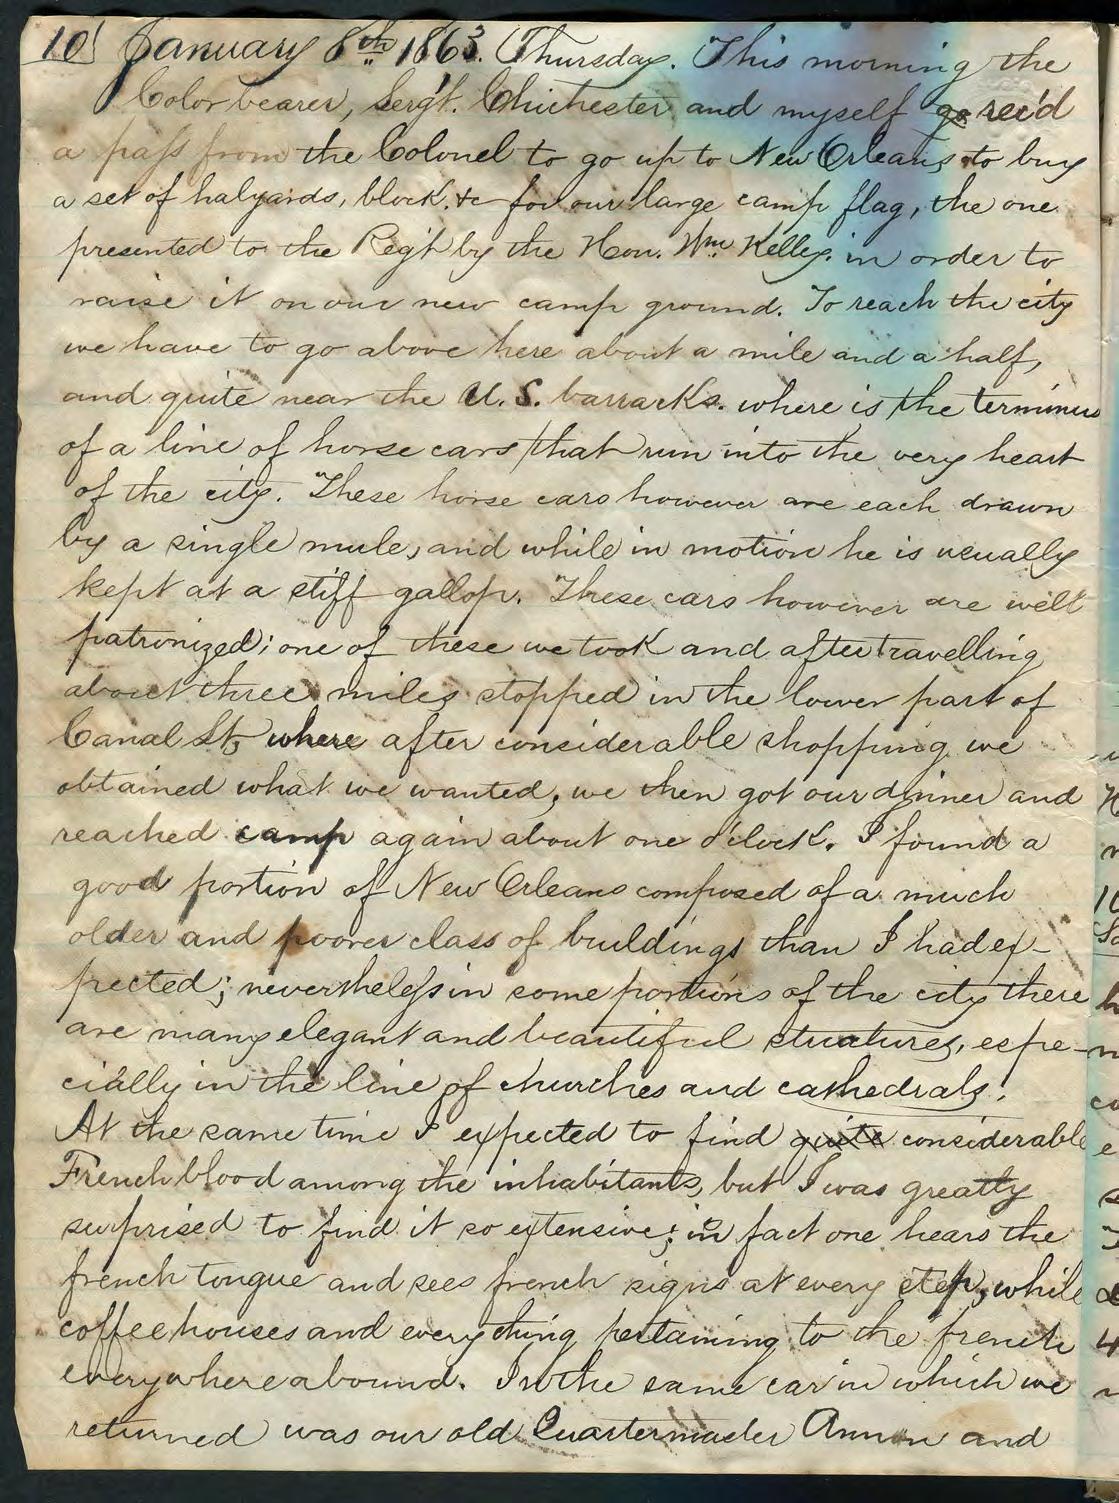 10 January 8th 1863. Thursday. This morning the
Color bearer, Serg't. Chichester and myself go rec'd
a pass from the Colonel to go up to New Orleans to buy
a set of halyards, block. &c for our large camp flag, the one
presented to the Reg't by the Hon. Wm. Kelly. in order to
raise it on our new camp ground. To reach the city
we have to go above here about a mile and a half,
and quite near the U. S. barracks. where is the terminus
of a line of horse cars that run into the very heart
of the city. These horse cars however are each drawn
by a single mule, and while in motion he is usually
kept at a stiff gallop. These cars however are well
patronized; one of these we took and after travelling
about three miles stopped in the lower part of
Canal St, where after considerable shopping we
obtained what we wanted, we then got our dinner and
reached camp again about one o'clock. I found a
good portion of New Orleans composed of a much
older and poorer class of buildings than I had ex-
pected; nevertheless in some portions of the city there
are many elegant and beautiful structures, espe-
cially in the line of churches and cathedrals.
At the same time I expected to find quite considerable
French blood among the inhabitants, but I was greatly
surprised to find it so extensive; in fact one hears the
french tongue and sees french signs at every step, while
coffee houses and everything pertaining to the french
everywhere abound. In the same car in which we
returned was our old Quartermaster and